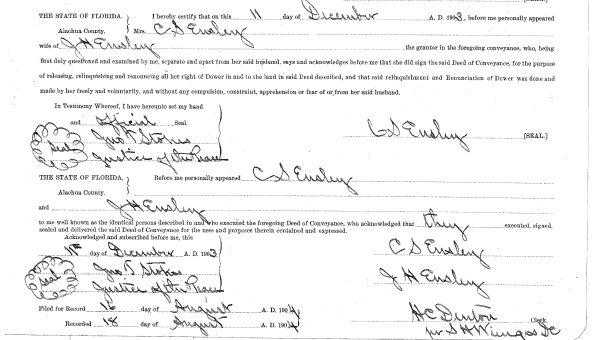 THE STATE OF FLORIDA, } I hereby certify that on this 11 day of December A. D. 1903, before me personally appeared
Alachua County. Mrs. C S Ensley
wife of J H Ensley the grantor in the foregoing conveyance, who, being
first duly questioned and examined by me, separate and apart from her said husband, says and acknowledges before me that she did sign the said Deed of Conveyance, for the purpose
of releasing, relinquishing and renouncing all her right of Dower in and to the land in said Deed described, and that said relinquishment and Renunciation of Dower was done and
made by her freely and voluntarily, and without any compulsion, constraint, apprehension or fear of or from her said husband.
In Testimony Whereof, I have hereunto set my hand
and official Seal.
Seal Jno T Stokes C S Ensley [SEAL.]
Justice of the Peace
THE STATE OF FLORIDA, } Before me personally appeared C S Ensley
Alachua County.
and J H Ensley
to me well known as the identical persons described in and who executed the foregoing Deed of Conveyance, who acknowledged that they executed, signed,
sealed and delivered the said Deed of Conveyance for the uses and purposes therein contained and expressed.
Acknowledged and subscribed before me, this
11th day of December A. D. 1903 C S Ensley
Seal Jno T Stokes J H Ensley
Justice of the Peace
Filed for Record 16 day of August A. D. 1904 H C Denton Clerk.
Recorded 18 day of August A. D. 1904 per S H Wienges DC